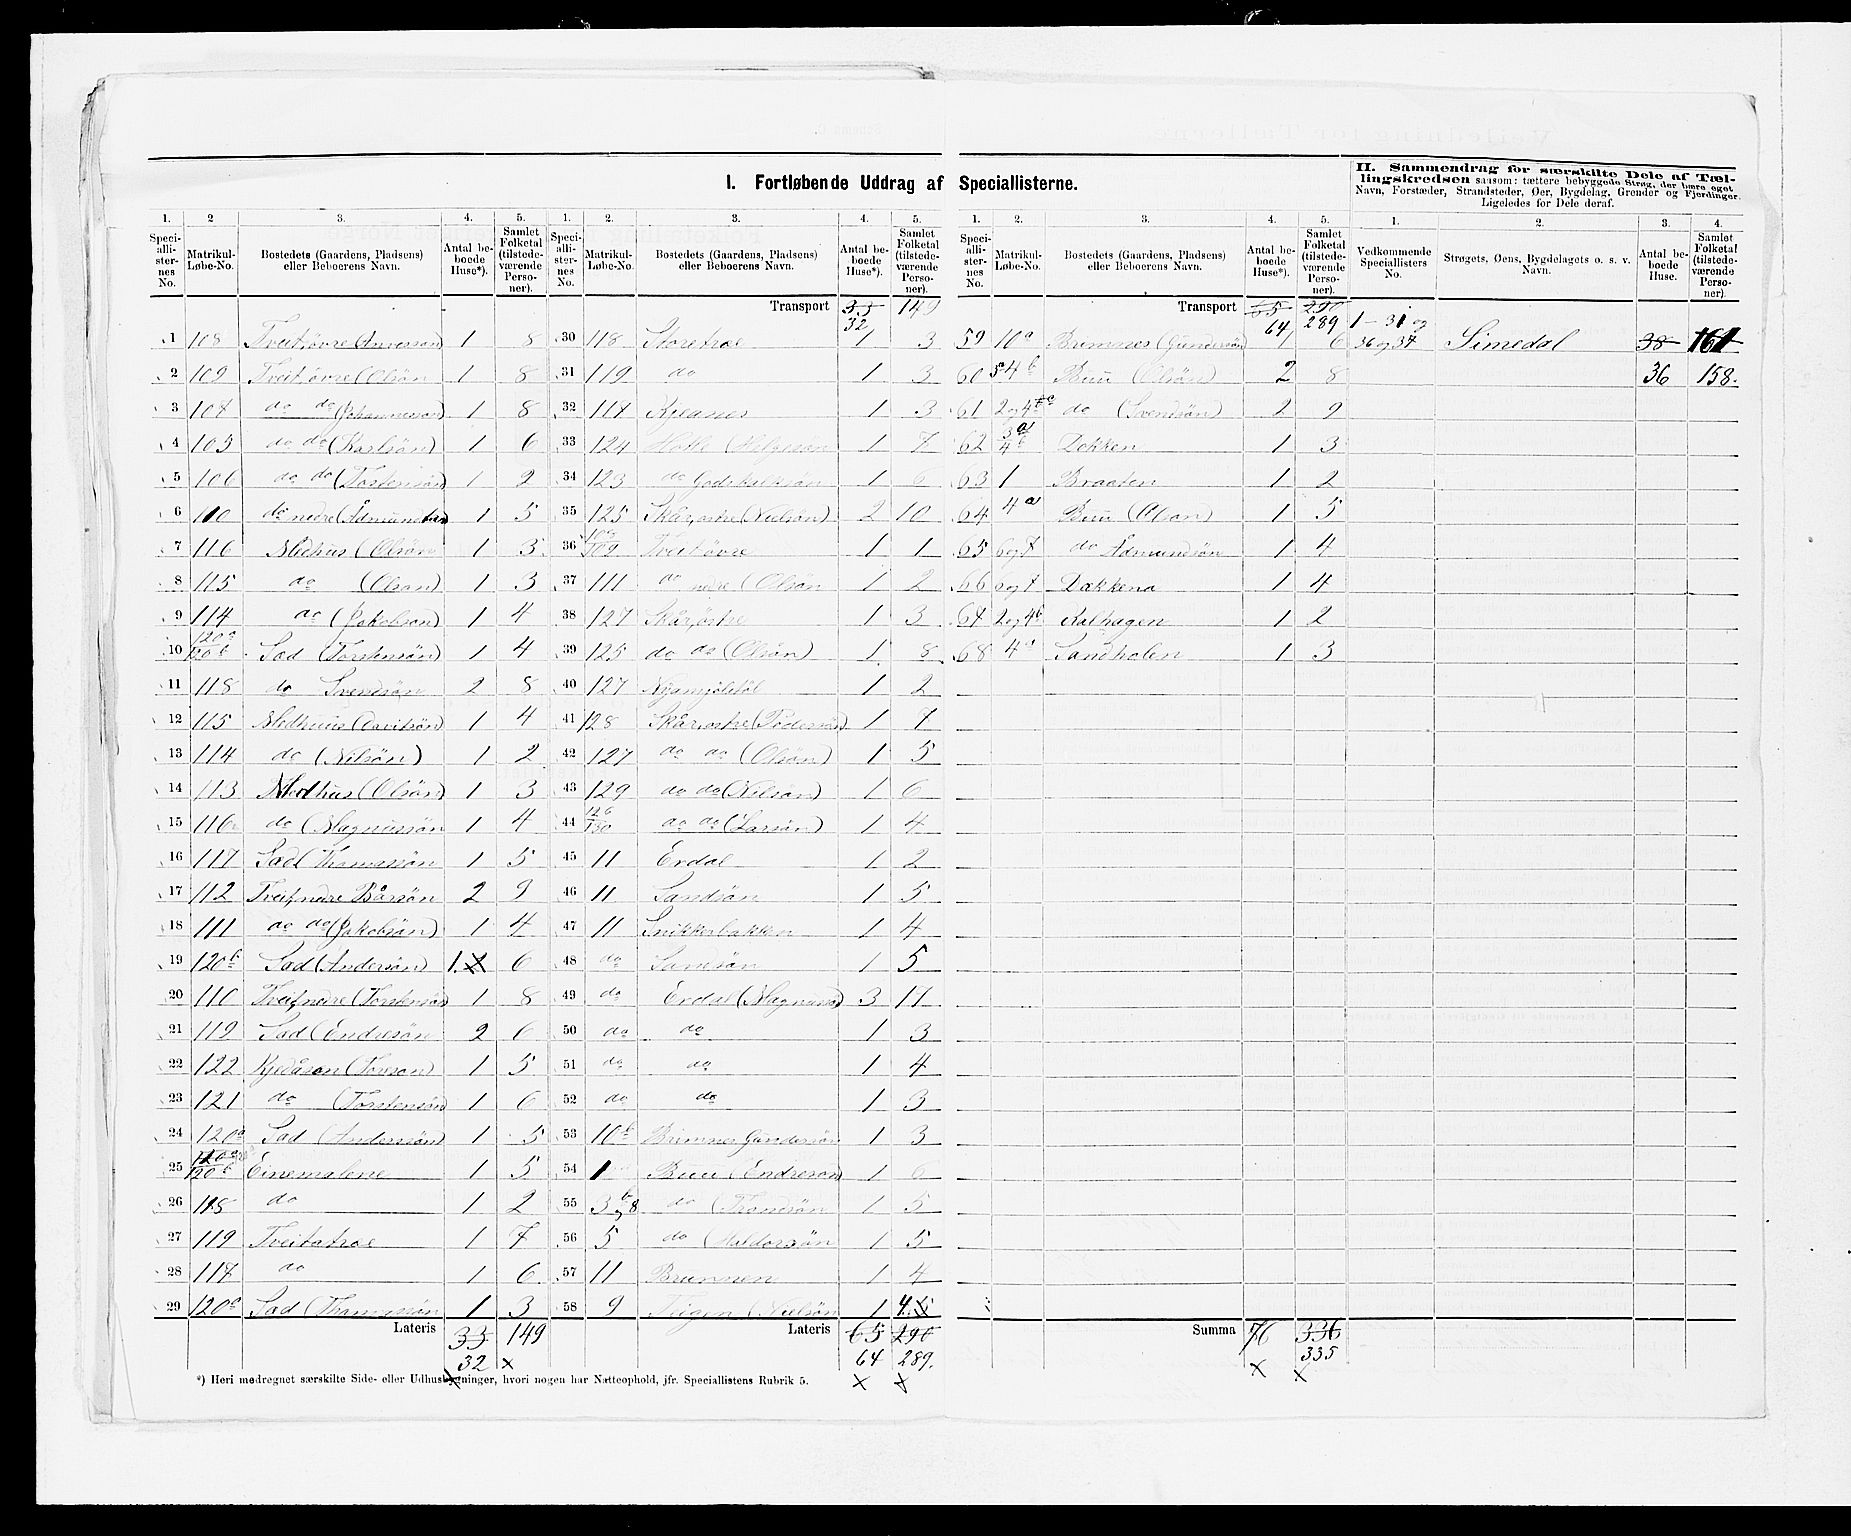 I. Fortløbende Uddrag af Speciallisterne.
II. Sammendrag for særskilte Dele af Tællingskredsen saasom: tættere bebyggede Strøg, der bære eget Navn, Forstæder, Strandsteder, Øer, Bygdelag, Grender og Fjerdinger. Ligeledes for Dele deraf.
1. 2 3. 4. 5. 1. 2. 3. 4. 5. 1. 2. 3. 4. 5. 1. 2. 3. 4.
Speciallisternes No. Matrikul-Løbe-No. Bostedets (Gaardens, Pladsens) eller Beboerens Navn. Antal beboede Huse*). Samlet Folketal (tilstedeværende Personer).
Speciallisternes No. Matrikul-Løbe-No. Bostedets (Gaardens, Pladsens) eller Beboerens Navn. Antal beboede Huse*). Samlet Folketal (tilstedeværende Personer).
Speciallisternes No. Matrikul-Løbe-No. Bostedets (Gaardens, Pladsens) eller Beboerens Navn. Antal beboede Huse*). Samlet Folketal (tilstedeværende Personer).
Vedkommende Speciallisters No. Strøgets, Øens, Bygdelagets o. s. v. Navn. Antal beboede Huse. Samlet Folketal (tilstedeværende Personer).
1 108 Tveit, øvre 1 8
2 109 Tveit, øvre (Olsön 1 8
3 107 do do (Johannesson) 1 8
4 105 do do (Karlsön) 1 6
5 106 do do (Torstensön) 1 2
6 110 do nedre (Ådmundsen 1 5
7 116 Medhus (Olsön 1 3
8 115 do (Olson) 1 3
9 114 do (Jakobson) 1 4
10 120a 120b Sad (Torstensön) 1 4
11 118 do Svendsön 2 8
12 115 Medhuus (Davidsön) 1 4
13 114 do (Nilsön) 1 2
14 113 Medhus (Olsön) 1 3
15 116 do (Magnussön 1 4
16 117 Sad (Thomassön 1 5
17 112 Tveit, nedre Bårsön 2 9
18 111 do do (Jakobsön) 1 4
19 120b Sad (Andersön) 1 6
20 110 Tveit, nedre (Torstensön 1 8
21 119 Sad (Endresön 2 6
22 122 1 5
23 121 do (Torstensön) 1 6
24 120a Sad (Anderssön) 1 5
25 120b Einemolene 1 5
26 118 do 1 2
27 119 Tveitatræ 1 7
28 117 do 1 6
29 120c Sad (Thomassön 1 3
Lateris 33 149
32 x
Transport 33 149
32
30 118 Storetræ 1 3
31 119 do 1 3
32 117 Kjeanes 1 3
33 124 (Helgesön 1 7
34 123 do Godskalksön 1 6
35 125 Skår, østre (Nielsön) 2 10
36 109 Tveit øvre 1 1
37 111 do nedre (Olson 1 2
38 127 Skår, östre 1 3
39 125 do do (Olsön) 1 8
40 127 1 2
41 128 Skår, østre (Pedersön) 1 7
42 127 do do (Olsön) 1 5
43 129 do do (Nilsön) 1 6
44 126 130 do do (Larsön) 1 4
45 11 Erdal 1 2
46 11 Sandsön 1 5
47 11 Snikkerbakken 1 4
48 do 1 5
49 do Erdal (Magnusson) 3 17
50 do do 1 3
51 do do 1 4
52 do do 1 3
53 10b Brimnes Gundersön 1 3
54 1 Buu (Endreson) 1 6
55 3b 8 do (Trondsön 1 5
56 5 do (Haldorsön 1 5
57 11 1 4
58 9 Teigen (Nielsön 1 4
Lateris 65 290
64 289.
x x
Transport 65 290
64 289
59 10a Brimnes (Gundersön 1 6
60 4b Buu (Olsön) 2 8
61 2 og 4 do (Svendsön) 2 9
62 3a 4b Dokken 1 3
63 1 Braaten 1 2
64 4a Buu (Olson) 1 5
65 6 og 7 do Ådmundsön 1 4
66 6 og 7 Dækkena 1 4
67 2 og 4b Kalhagen 1 2
68 4a Sandholen 1 3
Summa 76 336
335
x x
1 — 31 og
36 og 37 Simedal 38 161
36 158.
*) Heri medregnet særskilte Side- eller Udhusbygninger, hvori nogen har Natteophold, jfr. Speciallistens Rubrik 5.